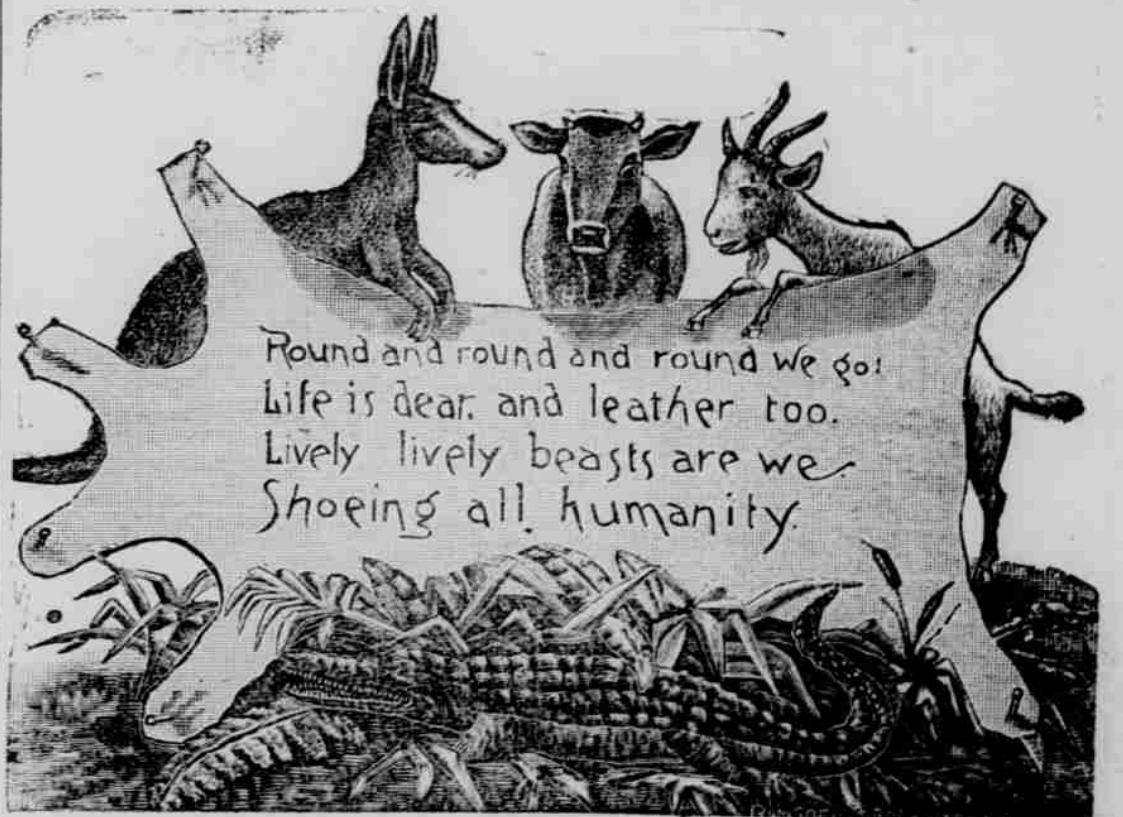 Round and round and round we go!
Life is dear. and leather too.
Lively lively beasts are we.
Shoeing all humanity.